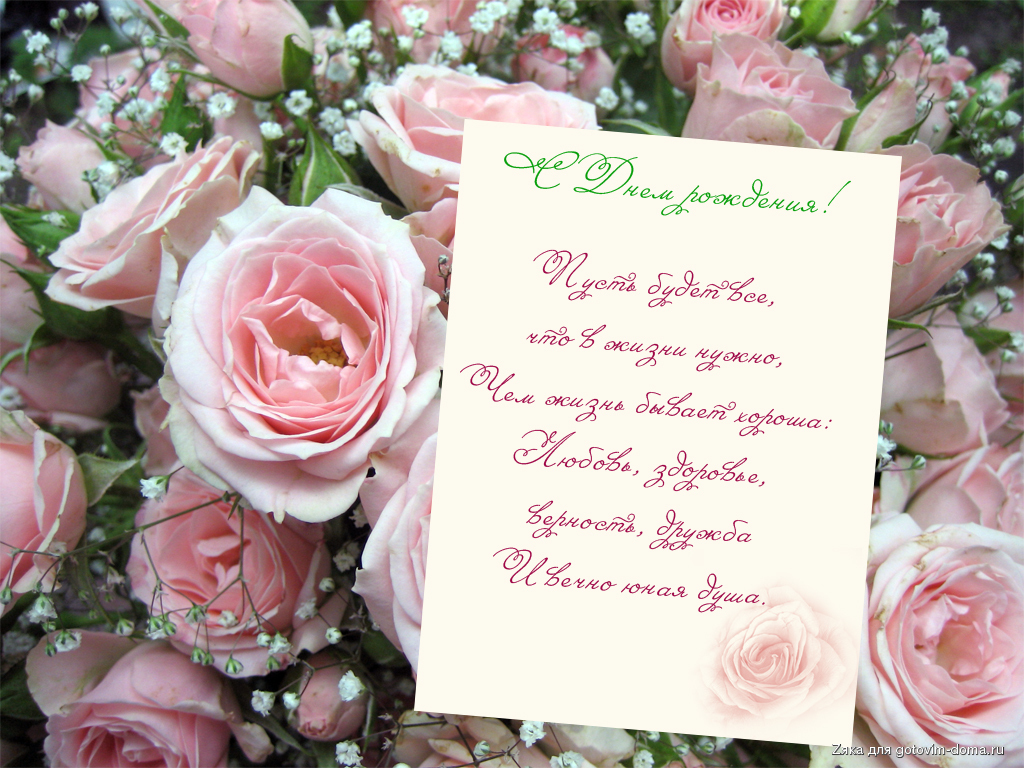 С Днем рождения!
Пусть будет все,
что в жизни нужно,
Чем жизнь бывает хороша:
Любовь, здоровье,
верность, дружба
И вечно юная душа.
Zяка для gotovim-doma.ru